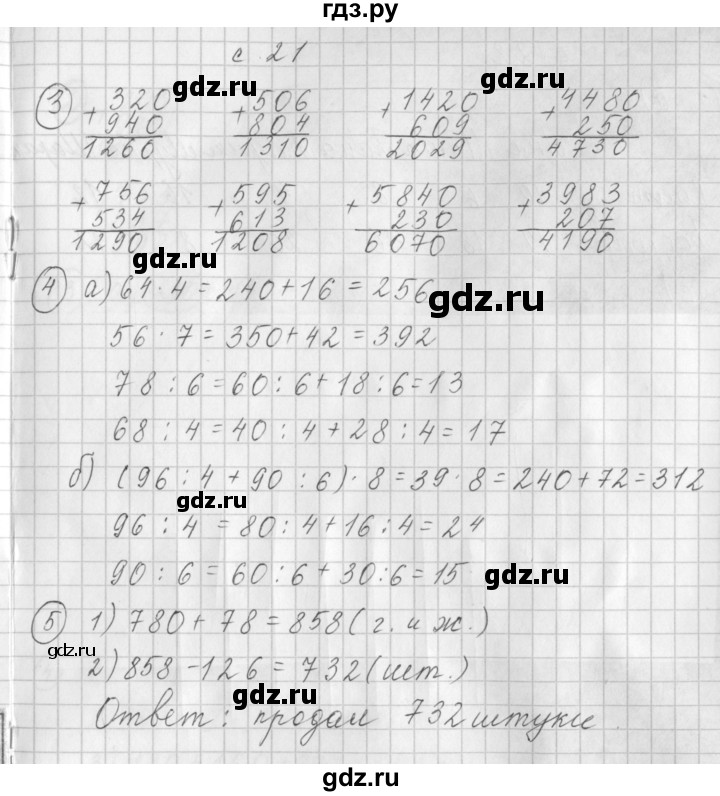 гдз.ру
с. 21
gdz.ru gdz.ru
③ +320 +506 +1420 +4480
940 804 609 250
1260 1310 2029 4730
+756 +595 +5840 +3983
534 613 230 207
1290 1208 6070 4190
gdz.ru
④ а) 64 · 4 = 240 + 16 = 256
gdz.ru
56 · 7 = 350 + 42 = 392
78 : 6 = 60 : 6 + 18 : 6 = 13
68 : 4 = 40 : 4 + 28 : 4 = 17
б) (96 : 4 + 90 : 6) · 8 = 39 · 8 = 240 + 72 = 312
gdz.ru
96 : 4 = 80 : 4 + 16 : 4 = 24
90 : 6 = 60 : 6 + 30 : 6 = 15
gdz.ru
⑤ 1) 780 + 78 = 858 (г. и ж.)
gdz.ru
2) 858 - 126 = 732 (шт.)
gdz.ru
Ответ: продали 732 штуки.
gdz.ru